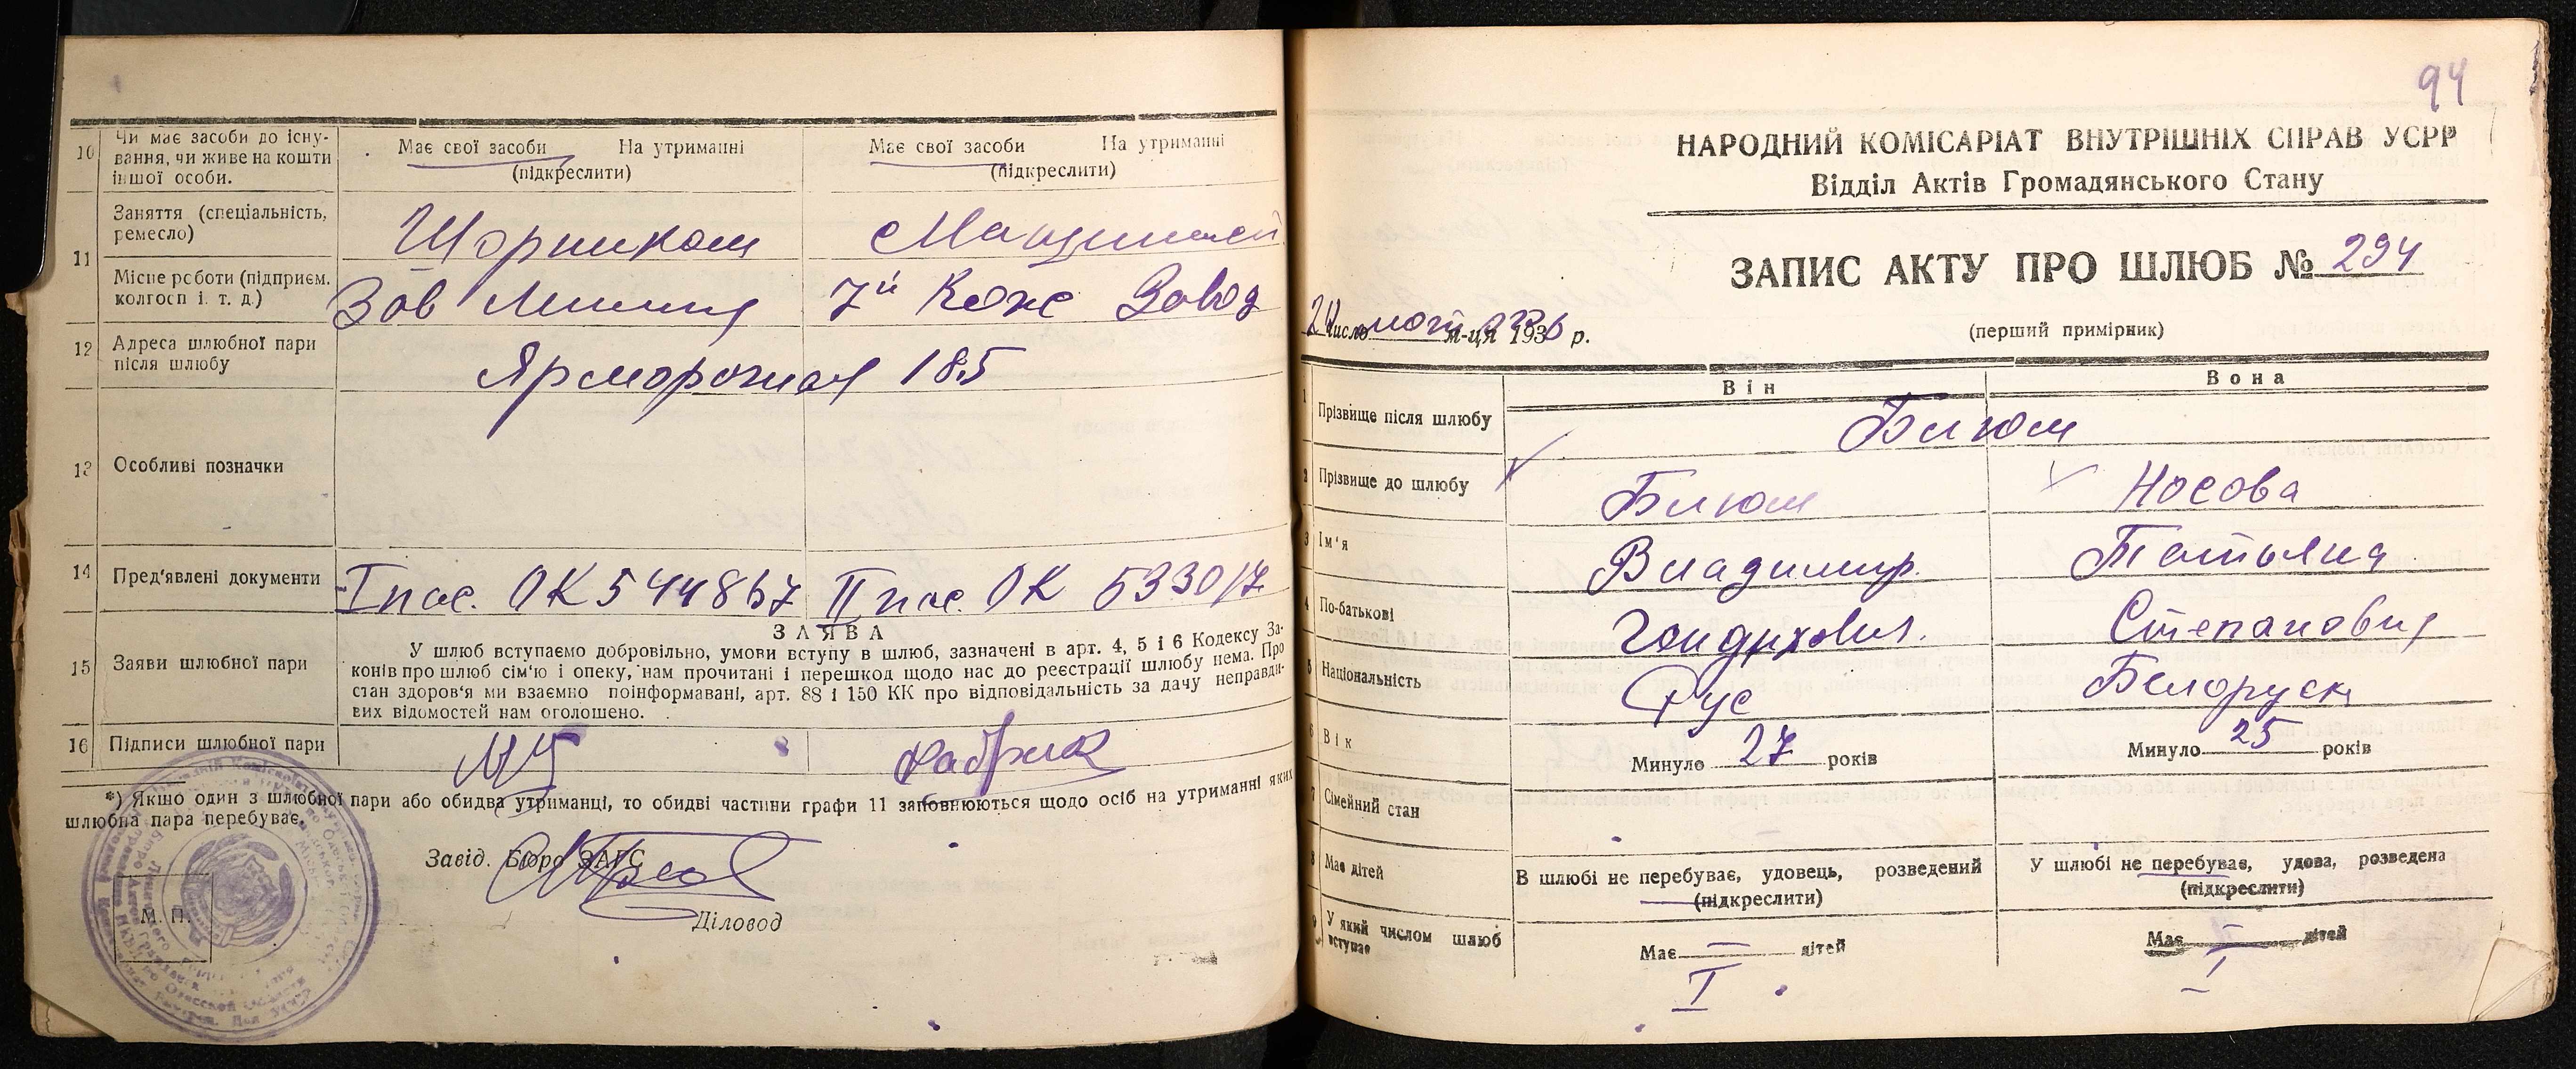 10 Чи має засоби до існу-
вання, чи живе на кошти
іншої особи.
Має свої засоби На утриманні
(підкреслити)
Має свої засоби На утриманні
(підкреслити)
11 Заняття (спеціальність,
ремесло)
Шорником
Місце роботи (підприєм.
колгосп і. т. д.)
Зав Ленина
7й Кож Завод
12 Адреса шлюбної пари
після шлюбу
Ярморочная 185
13 Особливі позначки
14 Пред'явлені документи
I пас. ОК 544867 II пас. ОК 533017
15 Заяви шлюбної пари
ЗАЯВА
У шлюб вступаємо добровільно, умови вступу в шлюб, зазначені в арт. 4, 5 і 6 Кодексу За-
конів про шлюб сім'ю і опеку, нам прочитані і перешкод щодо нас до реєстрації шлюбу нема. Про
стан здоров'я ми взаємно поінформавані, арт. 88 і 150 КК про відповідальність за дачу неправди-
вих відомостей нам оголошено.
16 Підписи шлюбної пари
*) Якшо один з шлюбної пари або обидва утриманці, то обидві частини графи 11 заповнюються щодо осіб на утриманні яких
шлюбна пара перебуває.
Завід. Бюро ЗАГС
М. П.
Діловод
94
НАРОДНИЙ КОМІСАРІАТ ВНУТРІШНІХ СПРАВ УСРР
Відділ Актів Громадянського Стану
ЗАПИС АКТУ ПРО ШЛЮБ № 294
Число м-ця 1936 р.
(перший примірник)
Він Вона
1 Прізвище після шлюбу
Блюм
2 Прізвище до шлюбу
Блюм Носова
3 Ім'я
Владимир Татьяна
4 По-батькові
Степановна
5 Національність
Рус Белоруск
6 Вік
Минуло 27 років
Минуло 25 років
7 Сімейний стан
В шлюбі не перебуває, удовець, розведений
(підкреслити)
У шлюбі не перебуває, удова, розведена
(підкреслити)
8 Має дітей
Має — дітей
Має — дітей
9 У який числом шлюб
вступає
I I